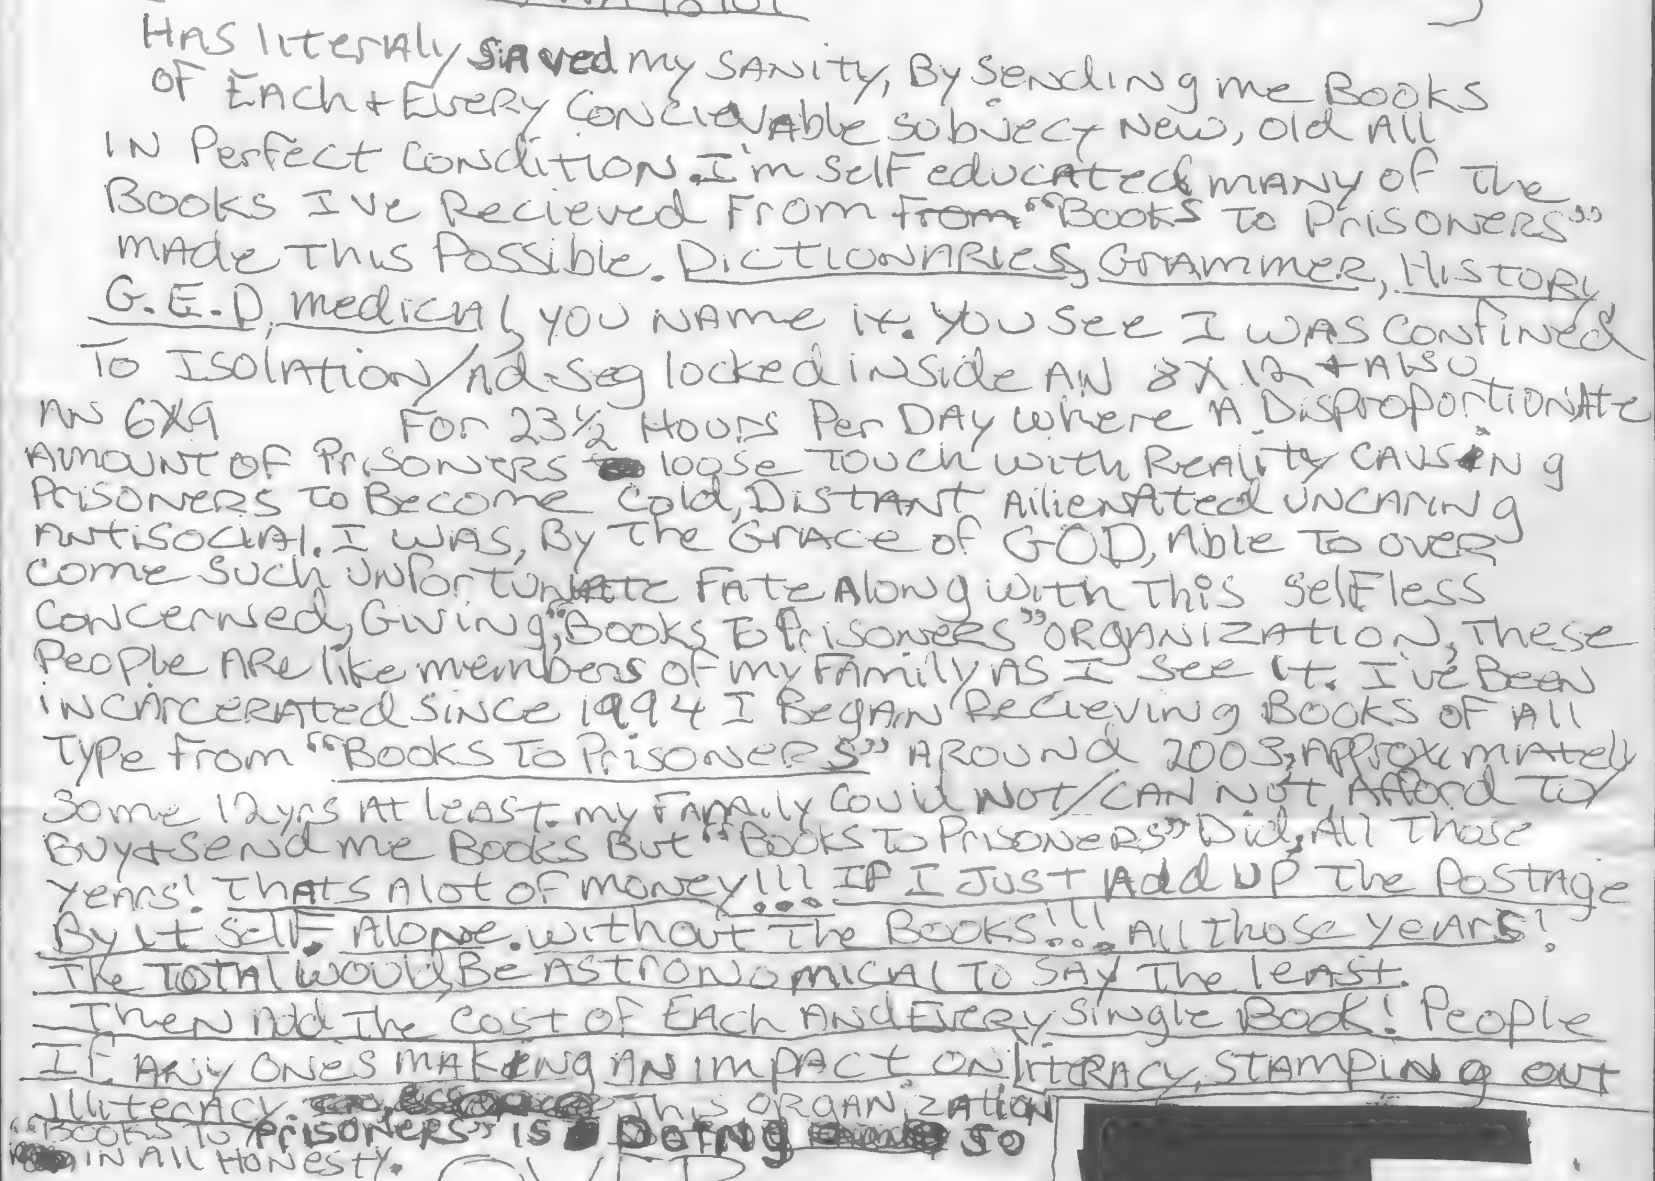 Has literaly saved my sanity, By sending me Books
of Each + Every Concievable subject New, old All
IN Perfect Condition. I'm self educated many of The
Books I've Recieved From from "Books To Prisoners"
made This Possible. Dictionaries, Grammer, History,
G.E.D, medical, you name it. You see I was confined
To Isolation/Ad-seg locked inside AN 8X12 + Also
AN 6X9 For 23½ Hours Per Day where A Disproportionate
Amount of Prisoners loose Touch with Reality causing
Prisoners To Become Cold, Distant Ailienated uncaring
Antisocial. I was, By The Grace of GOD, Able To over
come such unfortunate Fate Along with This selfless
concerned, Giving, "Books To Prisoners" organization, These
People Are like members of my Family As I see it. I've Been
incarcerated since 1994 I Began Recieving Books of All
Type From "Books To Prisoners" Around 2003, Approximately
some 12 yrs At least. my Family could NOT/CAN NOT, Afford To
Buy + send me Books But "Books To Prisoners" Did, All Those
years! Thats Alot of money!!! IF I Just Add up The Postage
By it self. Alone. without The Books!!! All those years!
The Total would Be Astronomical To say The least.
Then Add The cost of Each And Every single Book! People
If Any one's making an impact on literacy, stamping out
illiteracy. This organization
"Books To Prisoners" is Doing so
in All Honesty.
OVER